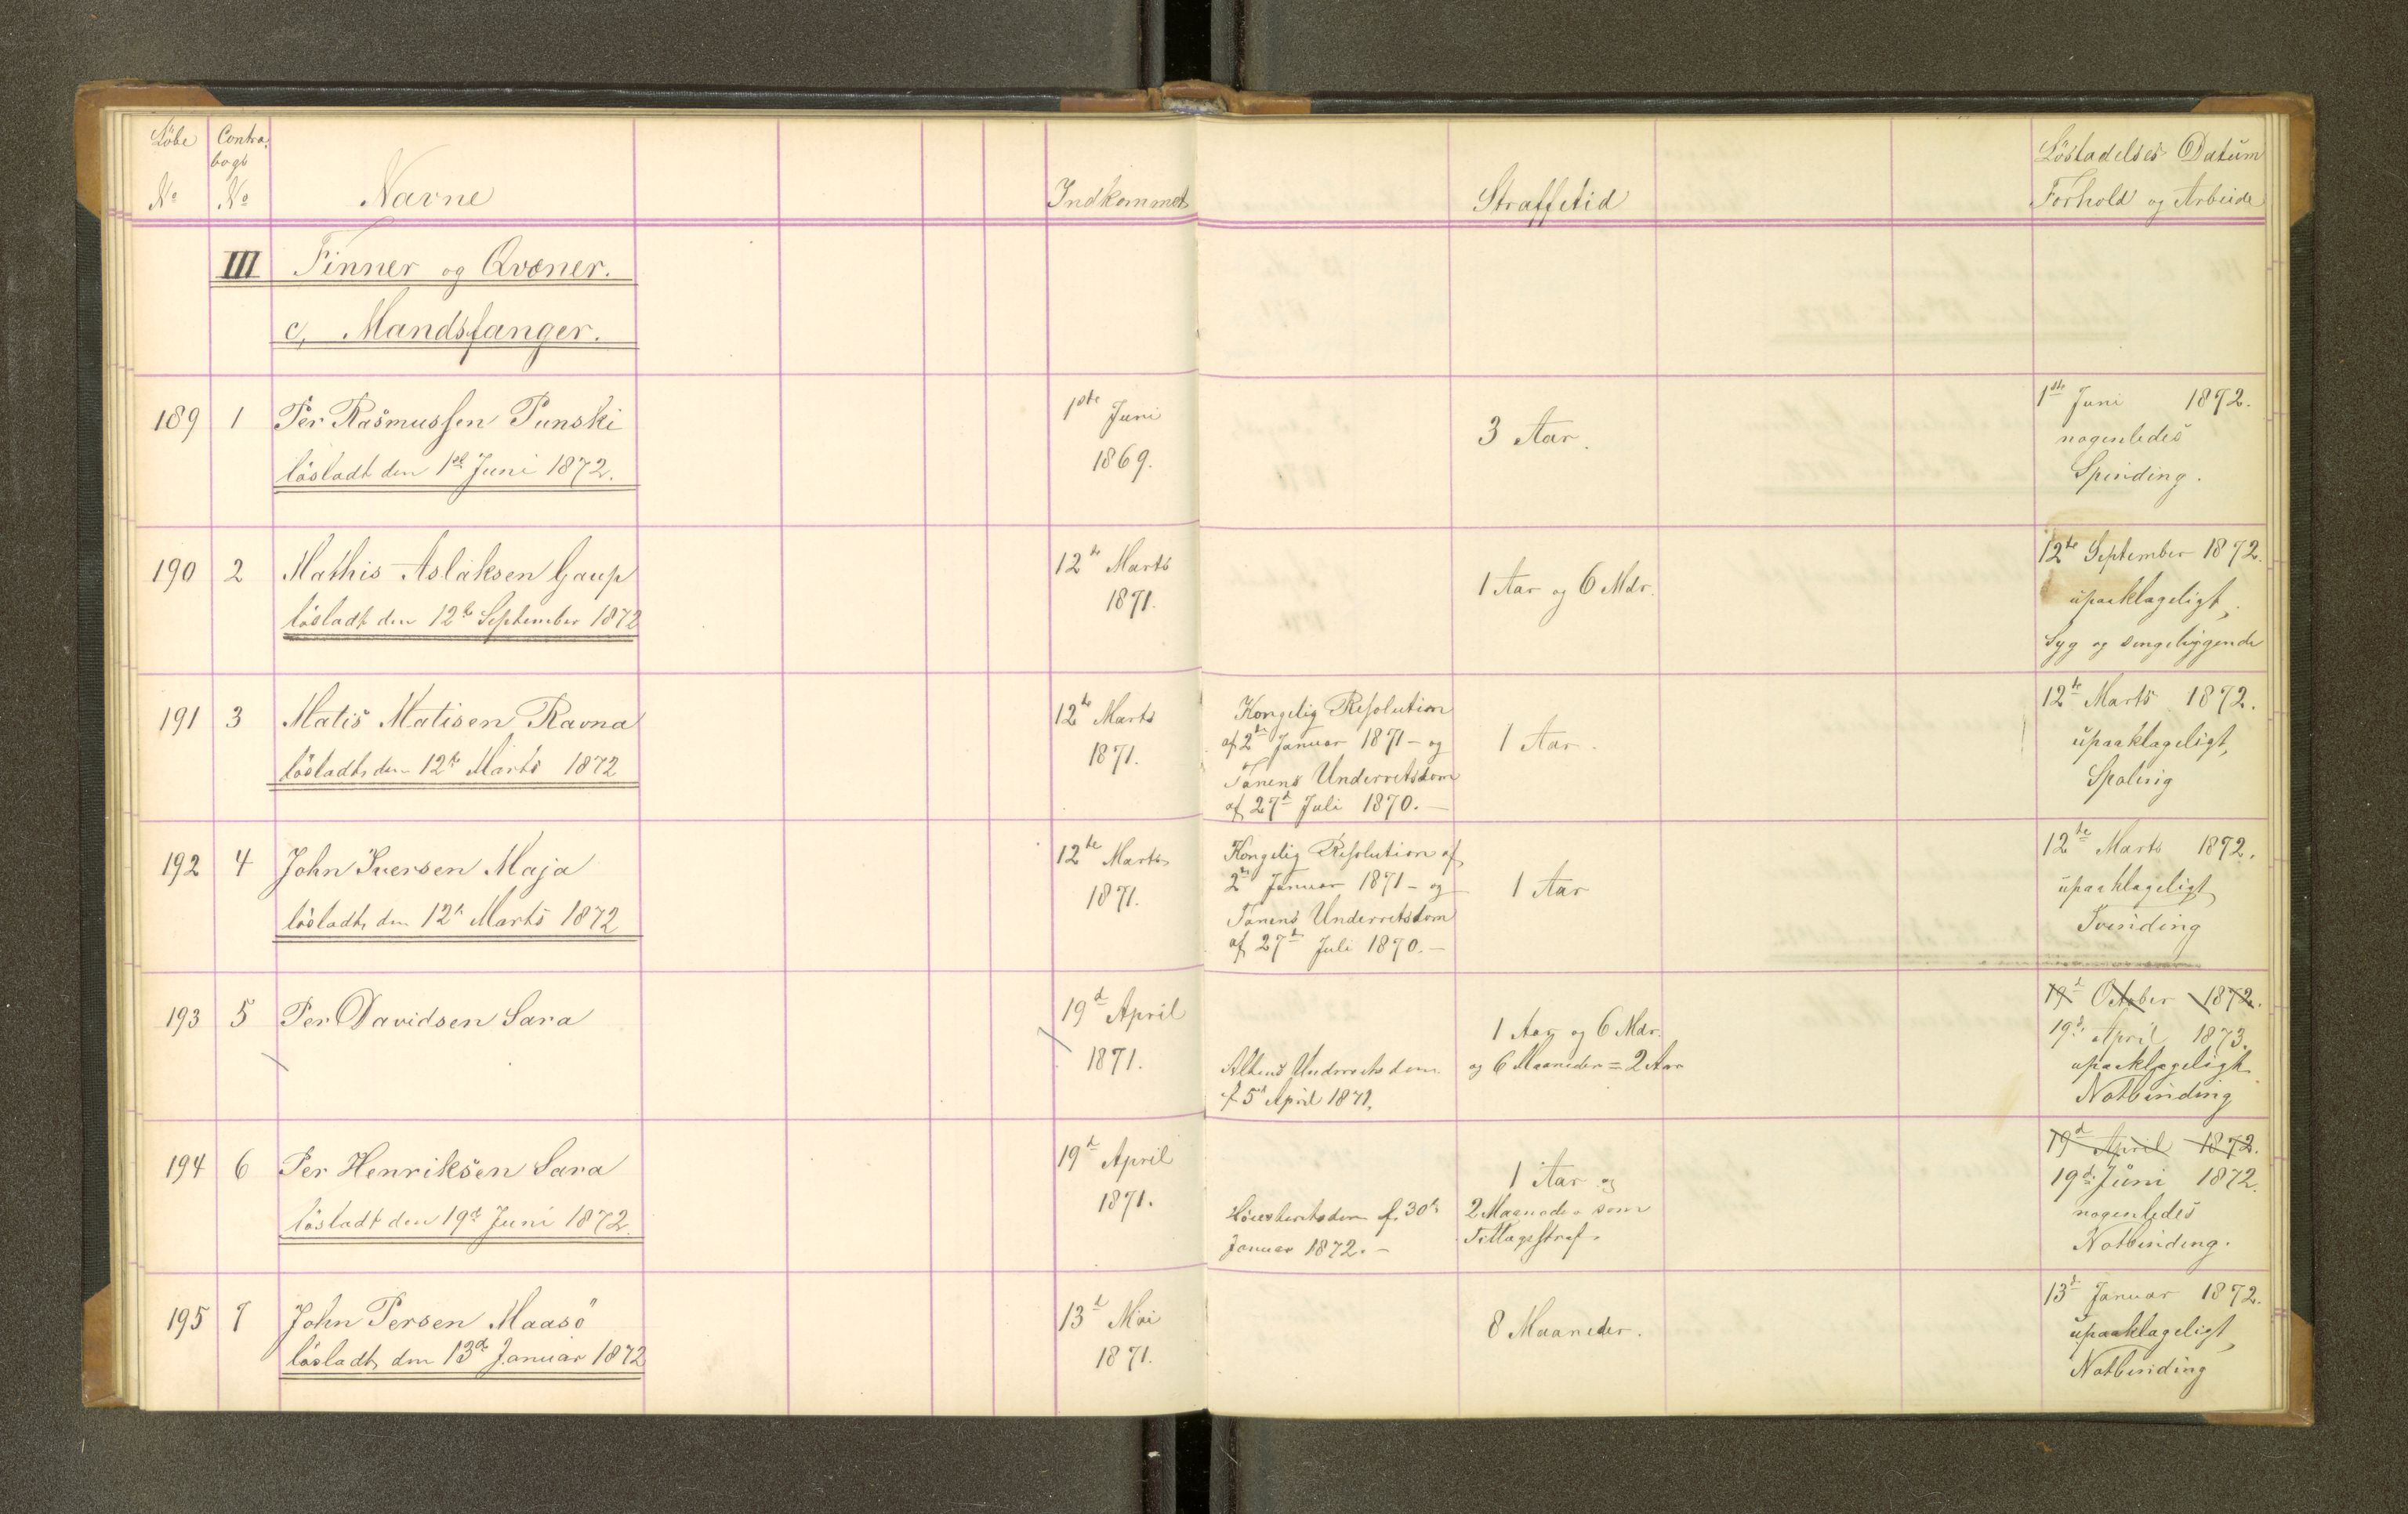 Löbe
No
Contra-
bogs
No
Navne
Indkommet
Straffetid
Lösladelses Datum
Forhold og Arbeide
III Finner og Qvæner.
c, Mandsfanger.
189 1 Per Rasmussen Punski
lösladt den 1ste Juni 1872.
1ste Juni
1869.
3 Aar.
1ste Juni 1872.
nogenledes
Spinding.
190 2 Mathis Aslaksen Gaup
lösladt den 12te September 1872
12te Marts
1871.
1 Aar og 6 Mdr.
12te September 1872.
upaaklageligt,
Syg og sengeliggende
191 3 Matis Matisen Ravna
lösladt den 12te Marts 1872
12te Marts
1871.
Kongelig Resolution
af 2den Januar 1871 - og
Tanens Underretsdom
af 27de Juli 1870. -
1 Aar.
12te Marts 1872.
upaaklageligt,
Spoling
192 4 John Iversen Maja
lösladt den 12te Marts 1872
12te Marts
1871.
Kongelig Resolution af
2den Januar 1871 - og
Tanens Underretsdom
af 27de Juli 1870. -
1 Aar
12te Marts 1872.
upaaklageligt,
Tvinding
193 5 Per Davidsen Sara
19de April
1871.
Altens Underretsdom
af 5te April 1871.
1 Aar og 6 Mdr.
og 6 Maaneder = 2 Aar
19de October 1872.
19de April 1873.
upaaklageligt.
Notbinding
194 6 Per Henriksen Sara
lösladt den 19de Juni 1872.
19de April
1871.
Höiesteretsdom af 30te
Januar 1872. -
1 Aar og
2 Maaneder som
Tillægsstraf.
19de April 1872.
19de Juni 1872.
nogenledes
Notbinding.
195 7 John Persen Maasö
lösladt den 13de Januar 1872
13de Mai
1871.
8 Maaneder.
13de Januar 1872.
upaaklageligt,
Notbinding